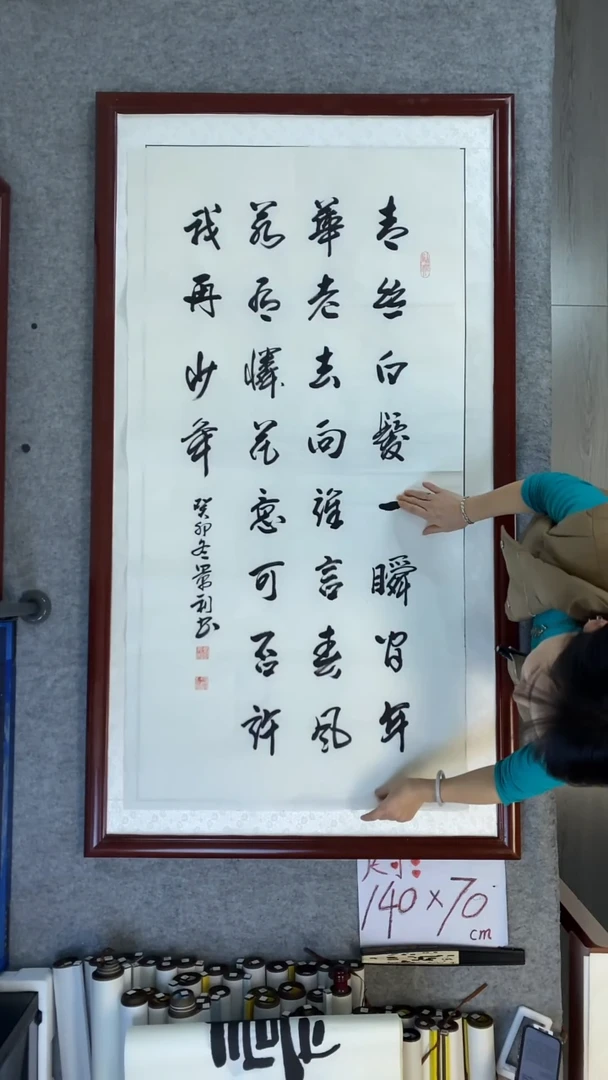 青丝白髮一瞬间年
華老去向谁言春风
若有憐花意可否許
我再少年
癸卯冬景利书
尺寸:
140×70cm